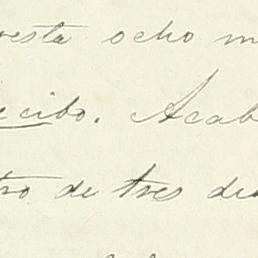 resta ocho m
ecibo. Acab
tro de tres di